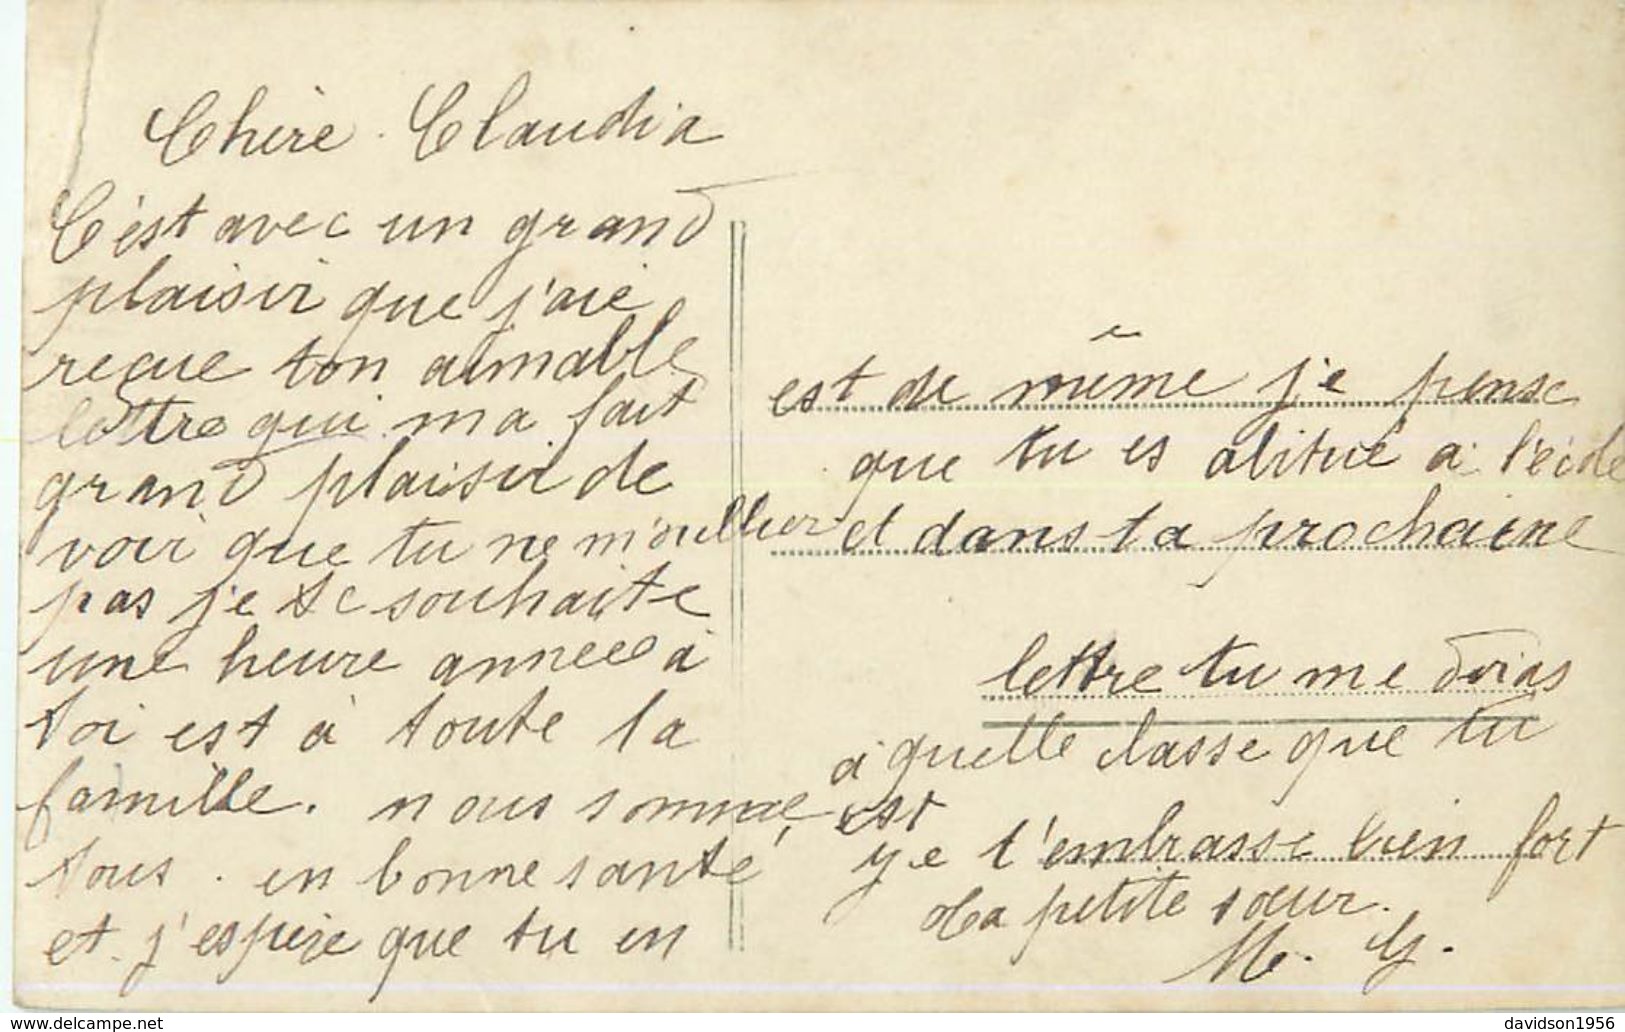 Chère Claudia
C'est avec un grand
plaisir que j'aie
reçue ton aimable
lettre qui ma fait
grand plaisir de
voir que tu ne m'oublier
pas je te souhaite
une heure annee à
toi est à toute la
famille. nous somme
tous en bonne santé
et j'espère que tu en
est de même je pense
que tu es abitué à l'école
et dans ta prochaine
lettre tu me diras
à quelle classe que tu
est
je t'embrasse bien fort
ta petite sœur.
M. G.
delcampe.net
davidson1956